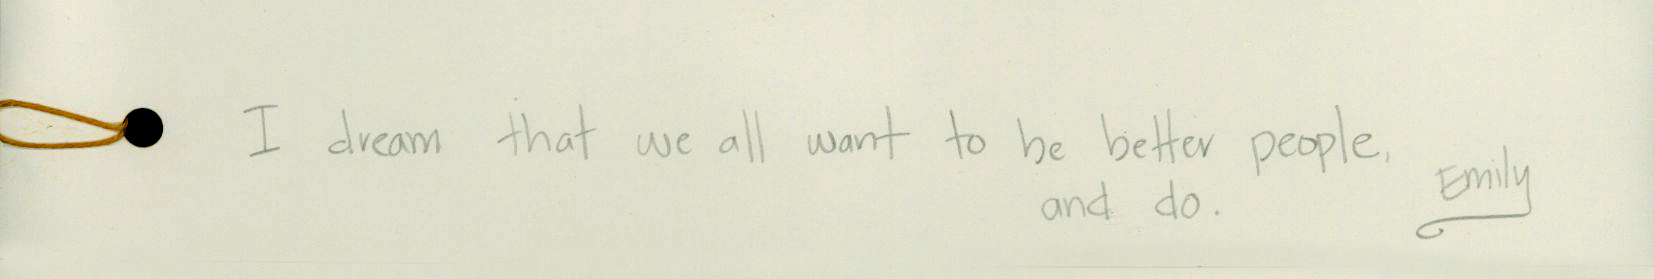 I dream that we all want to be better people,
and do.
Emily